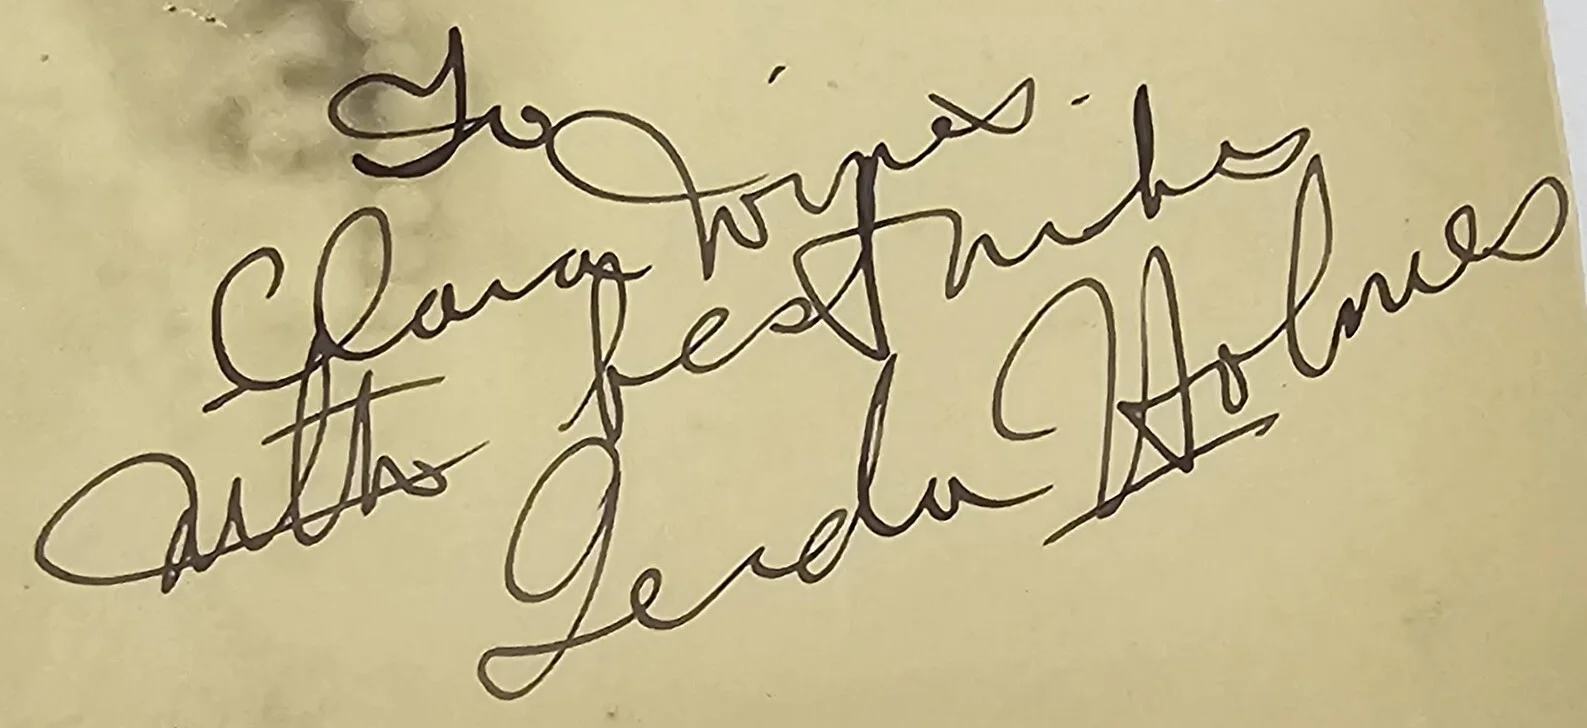 To
Clara Wines -
With best wishes
Gerda Holmes